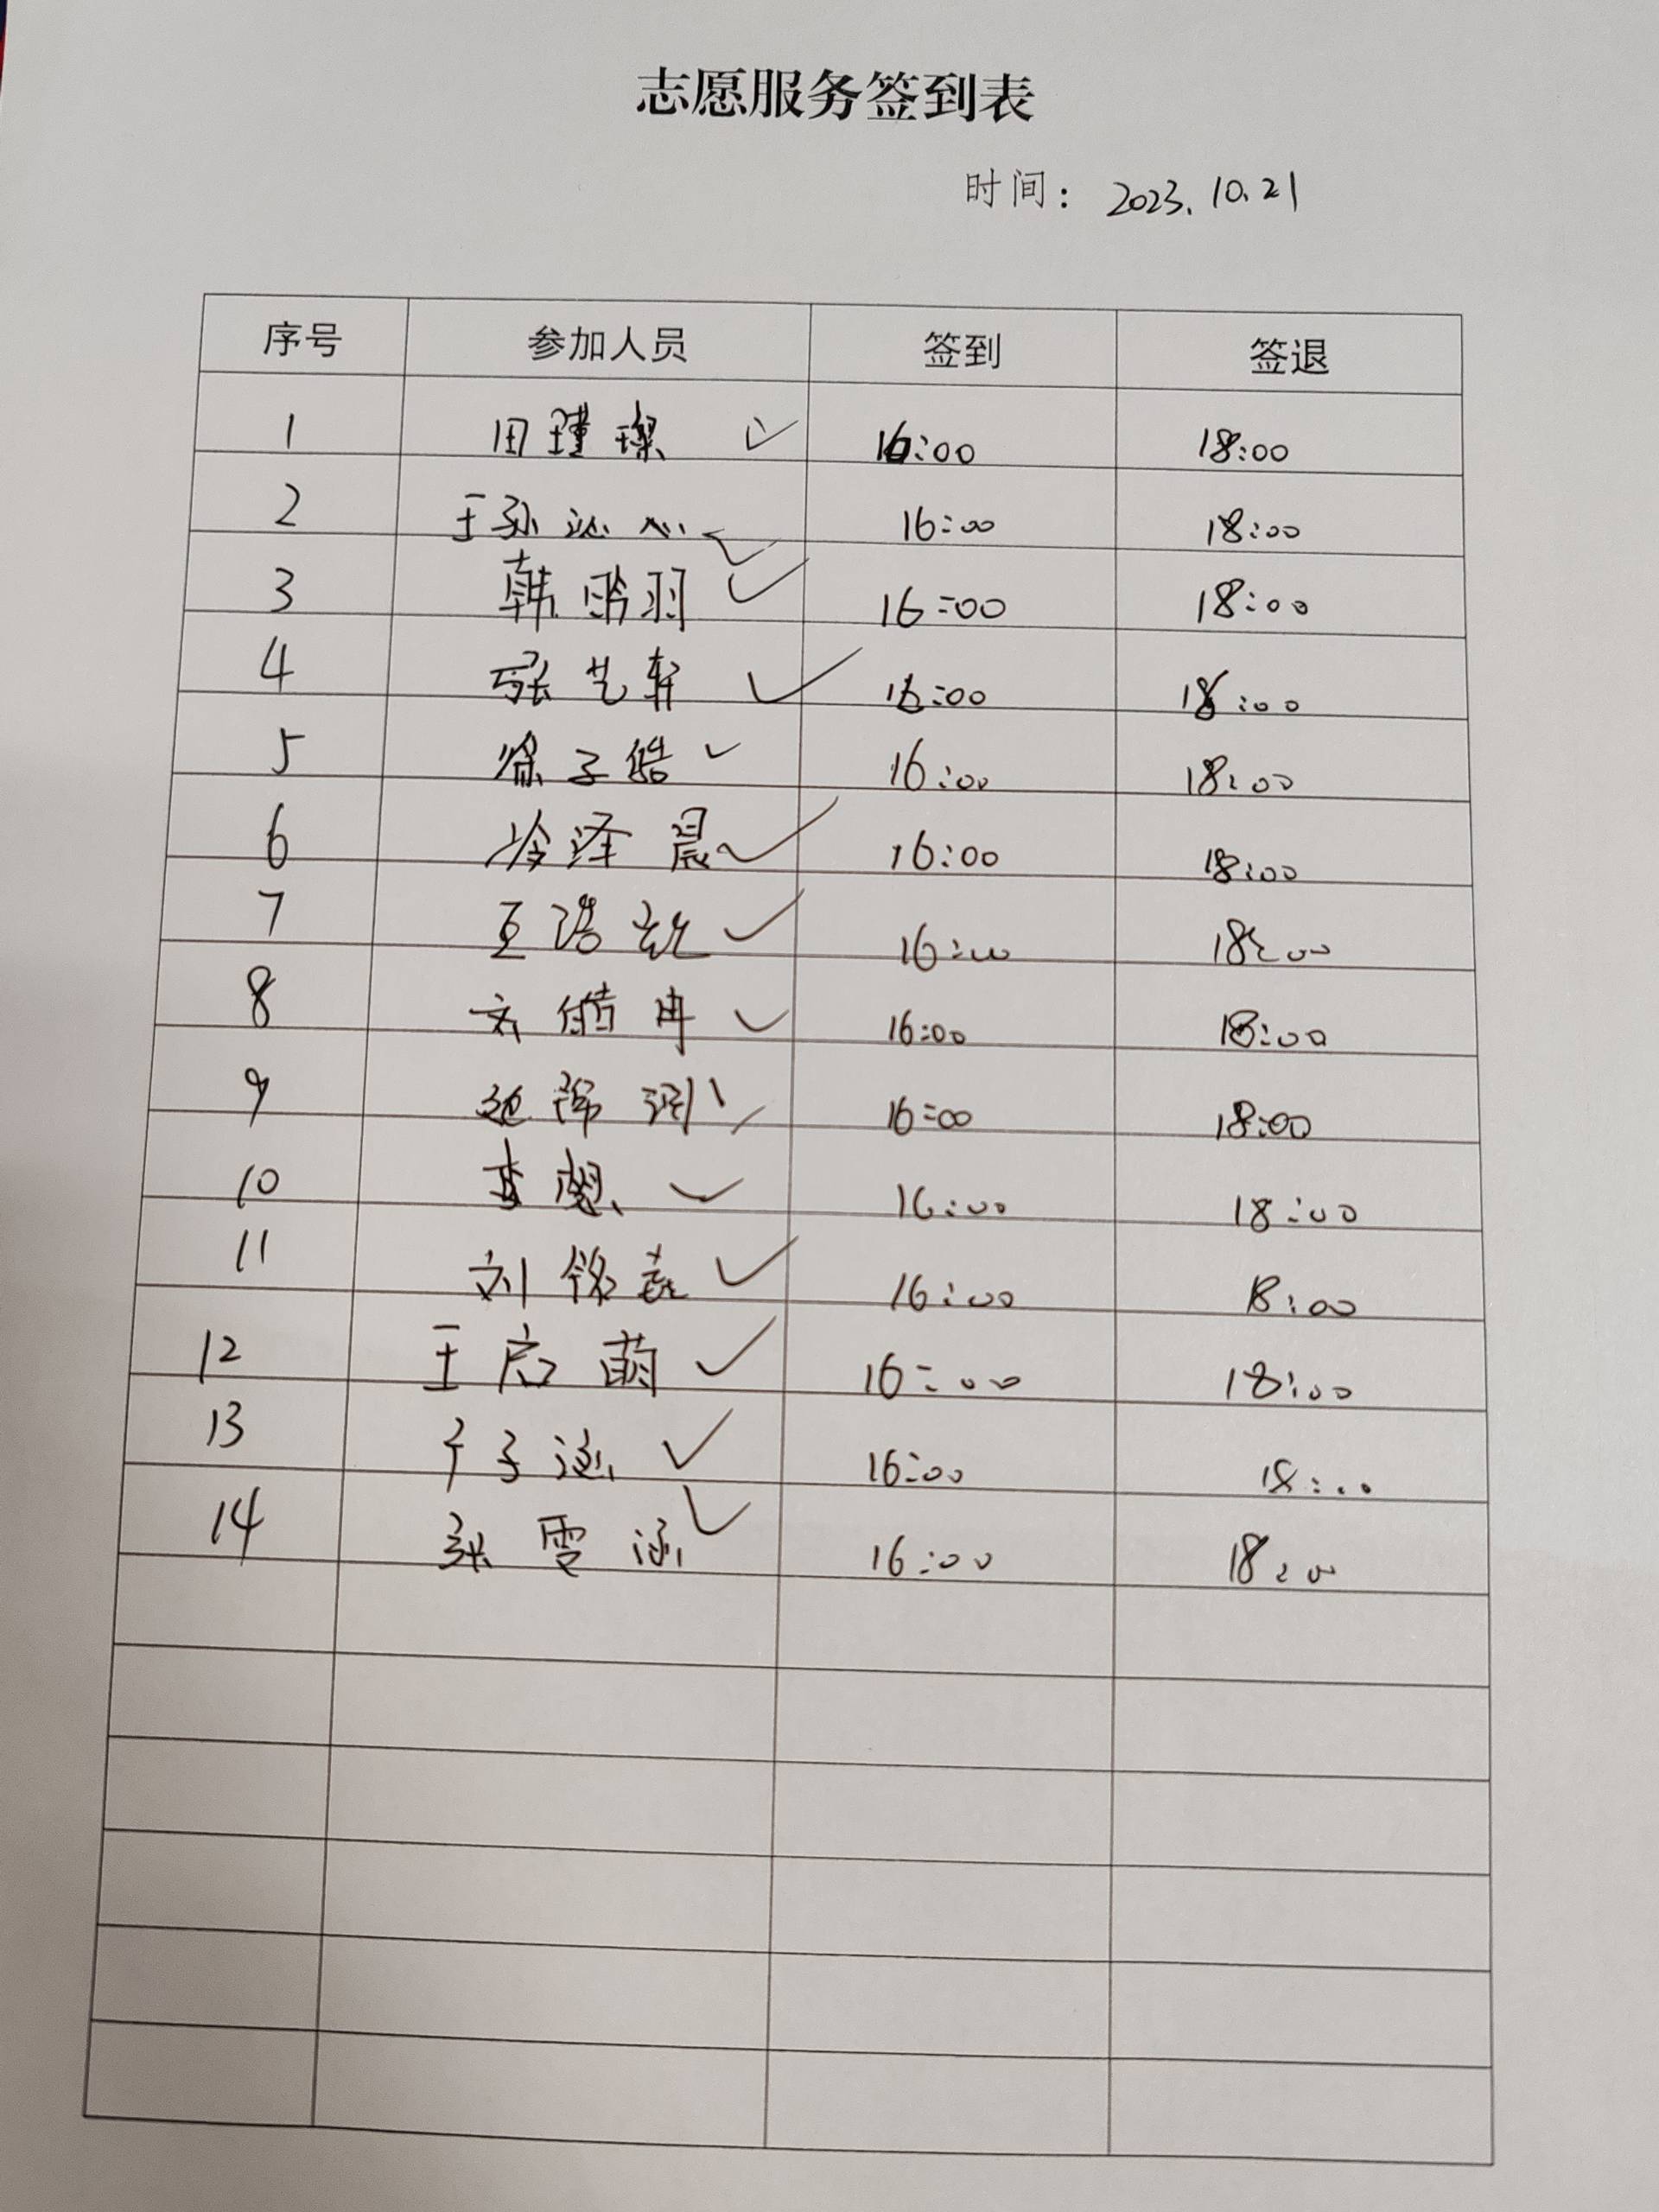 志愿服务签到表
时间： 2023.10.21
序号 参加人员 签到 签退
1 田瑾璨 ✓ 16:00 18:00
2 王孙 ✓ 16:00 18:00
3 韩羽 ✓ 16:00 18:00
4 张艺轩 ✓ 16:00 18:00
5 徐子皓 ✓ 16:00 18:00
6 冷泽晨 ✓ 16:00 18:00
7 王浩 ✓ 16:00 18:00
8 皓冉 ✓ 16:00 18:00
9 16:00 18:00
10 李想 ✓ 16:00 18:00
11 刘铭 ✓ 16:00 18:00
12 王启萌 ✓ 16:00 18:00
13 于子涵 ✓ 16:00 18:00
14 张雯涵 ✓ 16:00 18:00